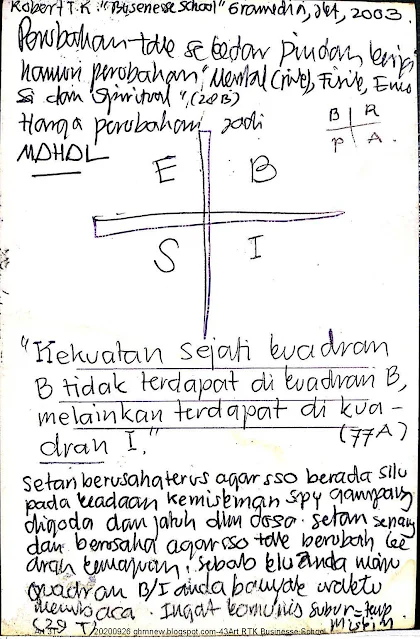 Robert T.K : "Busenese School" Gramedia, Jkt, 2003
Perubahan tdk sekedar pindah
hamun perobahan, "Mental (), Fisik, Emo
si dan Spiritual", (28B)
Harga perobahan jadi
MAHAL
B | R
P | A.
E B
S I
"Kekuatan sejati kuadran
B tidak terdapat di kuadran B,
melainkan terdapat di kua-
dran I."
(77A)
Setan berusaha terus agar sso berada slu
pada keadaan kemiskinan spy gampang
digoda dan jatuh dlm dosa. Setan senang
dan berusaha agar sso tdk berubah ke
arah kemajuan. Sebab klu anda maju
quadran B/I anda banyak waktu
membaca. Ingat komunis subur = tmp
miskin
(29 T)
Art 31 20200926 gbmnew.blogspot.com-43Art RTK Businesse School